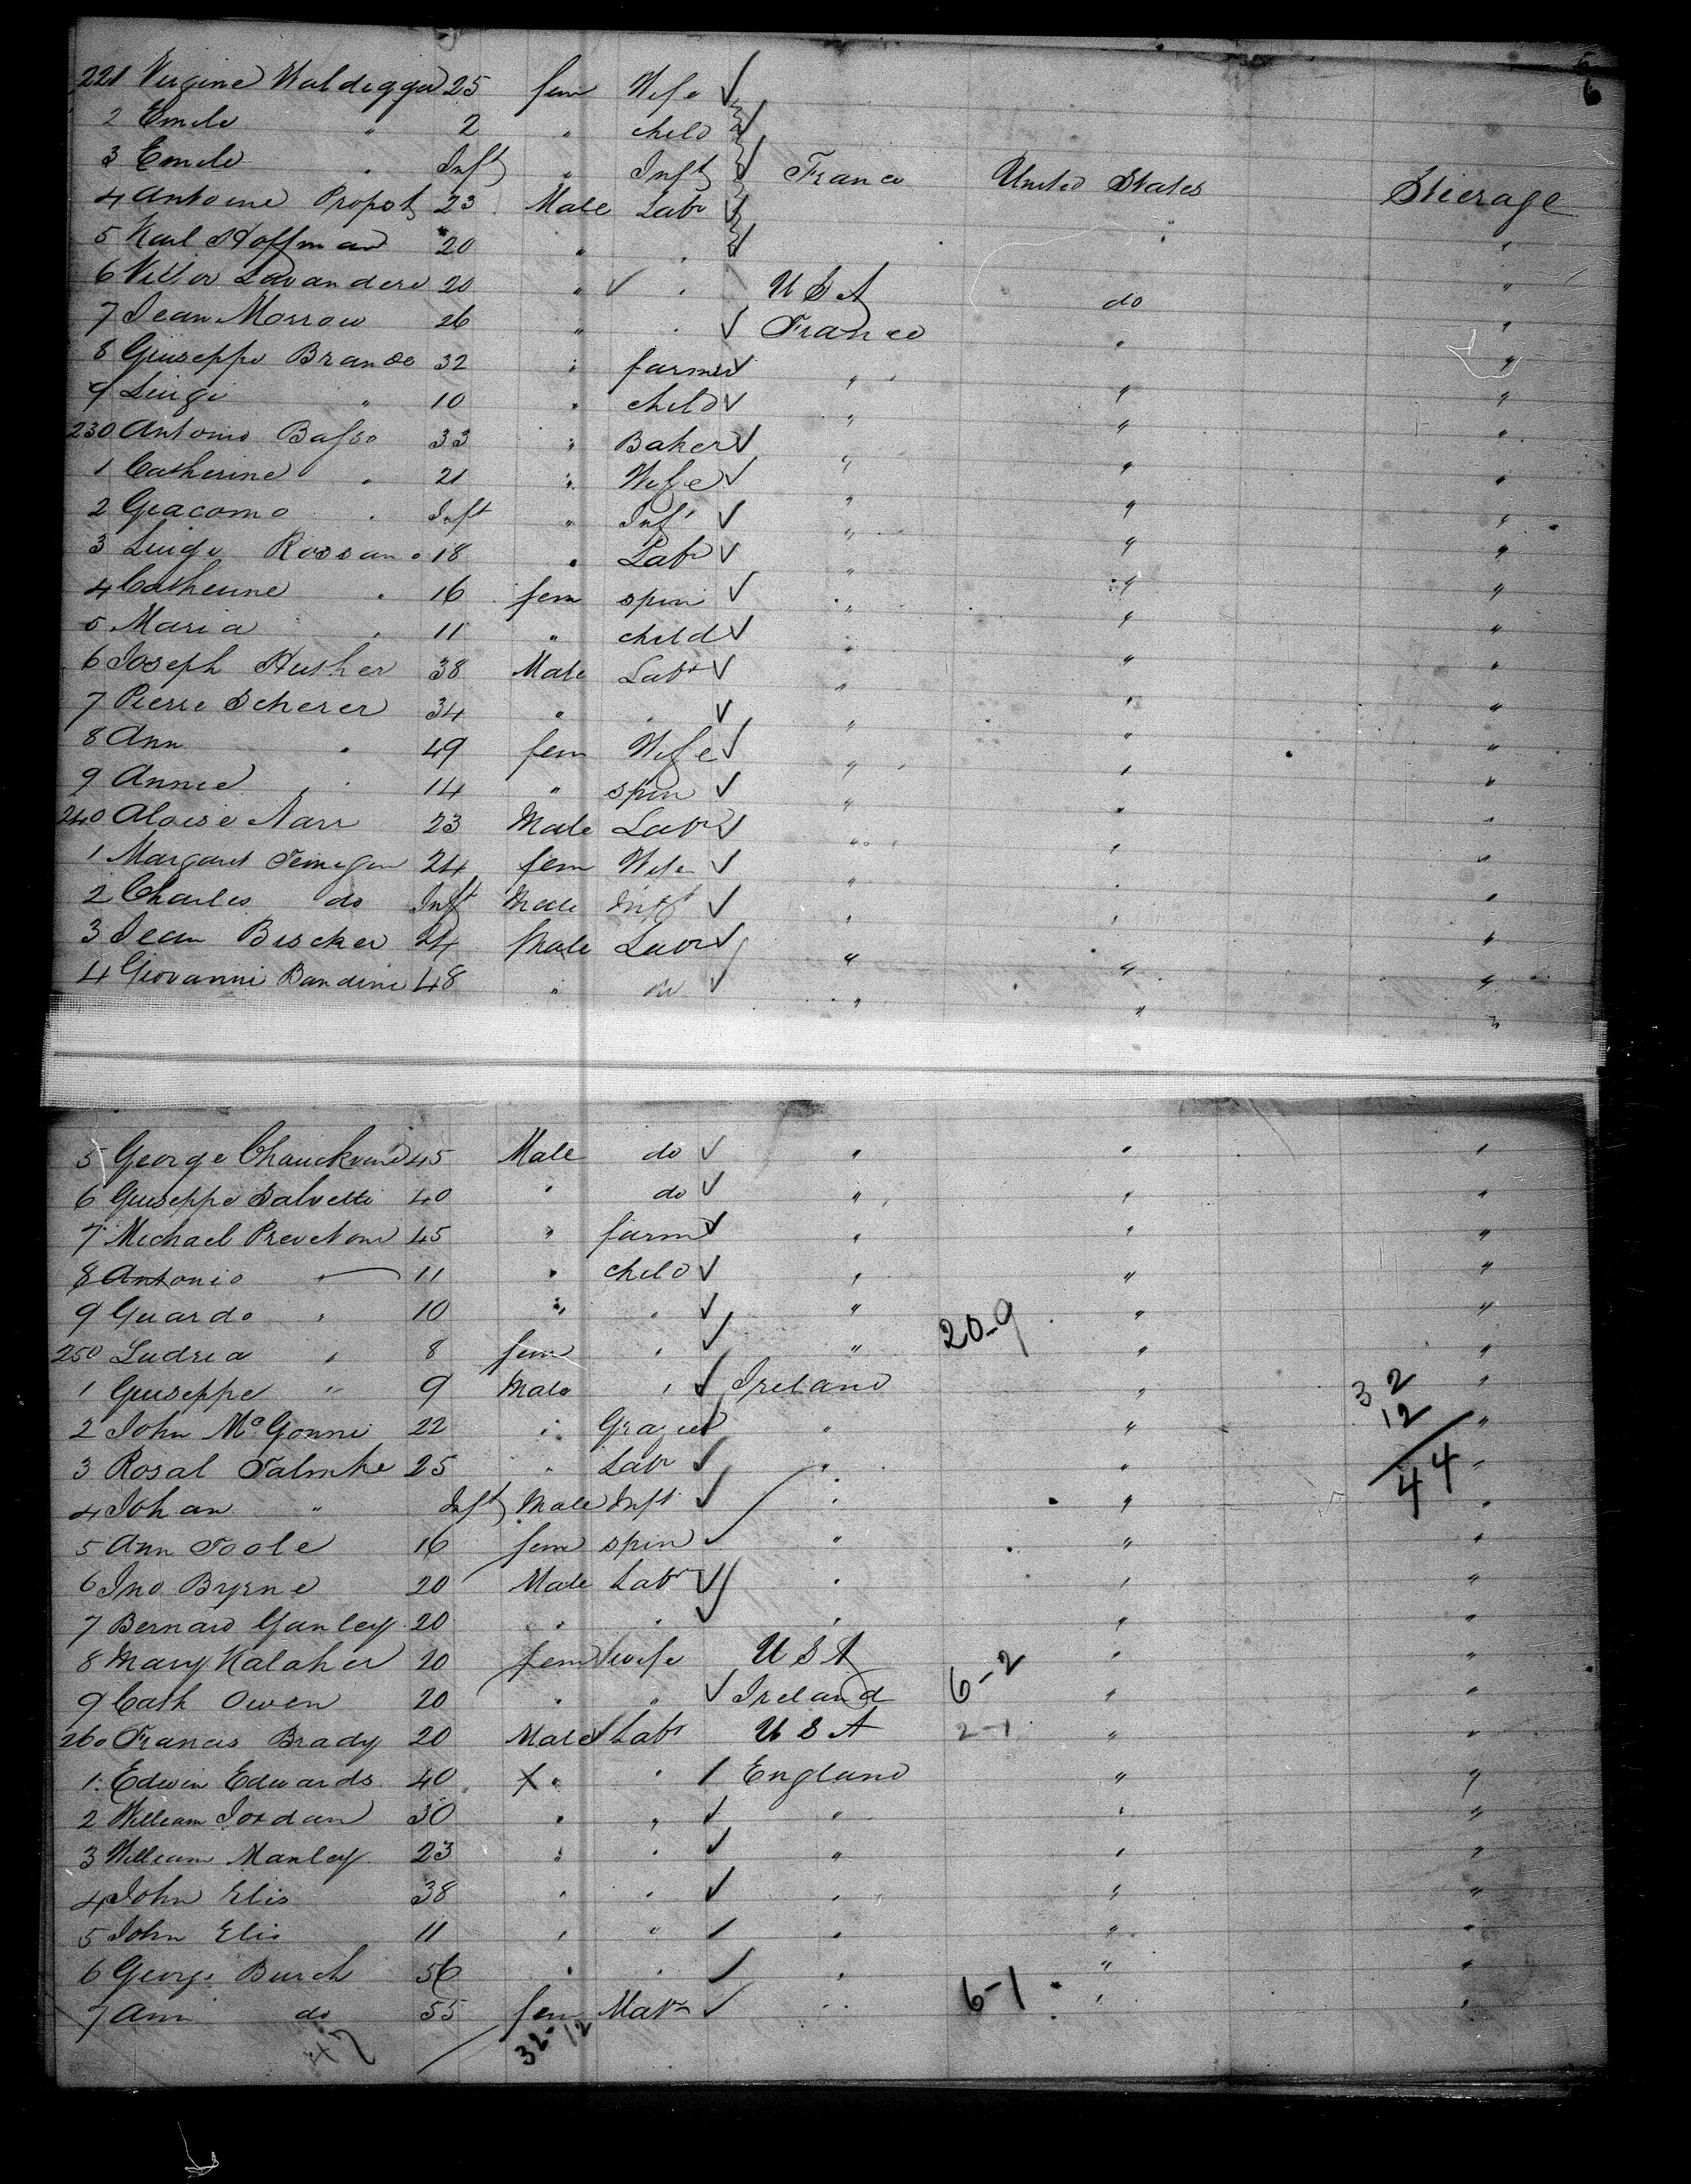 6
221 Virgine Waldeggar 25 fem Wife ✓
2 Emile " 2 " child ✓
3 Emile " Inft " Inft ✓ France United States Stierage
4 Antoine Propst 23 Male Labr ✓
5 Karl Hoffman 20 " " ✓ "
6 Victor Lavandere 20 " ✓ " U S A do "
7 Jean Morrow 26 " " ✓ France " "
8 Giuseppe Brande 32 " farmer ✓ " " "
9 Luigi " 10 " child ✓ " " "
230 Antonio Basso 33 " Baker ✓ " " "
1 Catherine " 21 " Wife ✓ " " "
2 Giacomo " Inft " Inft ✓ " " "
3 Luigi Rossan " 18 " Labr ✓ " " "
4 Catherine " 16 fem spin ✓ " " "
5 Maria " 11 " child ✓ " " "
6 Joseph Husher 38 Male Labr ✓ " " "
7 Pierre Scherer 34 " " ✓ " " "
8 Ann " 49 fem Wife ✓ " " "
9 Annie " 14 " spin ✓ " " "
240 Aloise Narr 23 Male Labr ✓ " " "
1 Margaret 24 fem Wife ✓ " " "
2 Charles do Inft Male Inft ✓ " " "
3 Jean Bischer 24 Male Labr ✓ " " "
4 Giovanni Bandini 48 " do ✓ " " "
5 George 45 Male do ✓ " " "
6 Giuseppe Salvetti 40 " do ✓ " " "
7 Michael 45 " farm ✓ " " "
8 Antonio " 11 " child ✓ " " "
9 Guardo " 10 " " ✓ " " "
250 Ludria " 8 fem " ✓ " 20-9 " "
1 Giuseppe " 9 Male " ✓ Ireland " 32 "
2 John McGonni 22 " Grazier ✓ " " 12 "
3 Rosal Talmke 25 " Labr ✓ " " 44 "
4 Johan " Inft Male Inft ✓ " " "
5 Ann Toole 16 fem spin ✓ " " "
6 Jno Byrne 20 Male Labr ✓ " " "
7 Bernard Ganley 20 " " ✓ " " "
8 Mary Kalaher 20 fem ✓ wife U S A " "
9 Cath Owen 20 " " ✓ Ireland 6-2 " "
260 Francis Brady 20 Male ✓ Labr U S A 2-1 " "
1 Edwin Edwards 40 X " " / England " "
2 William Jordan 30 " " ✓ " " "
3 William Manley 23 " " ✓ " " "
4 John Elis 38 " " ✓ " " "
5 John Elis 11 " " / " " "
6 George Burch 56 " " ✓ " " "
7 Ann do 55 fem Matn ✓ " 6-1 " "
47 32-12